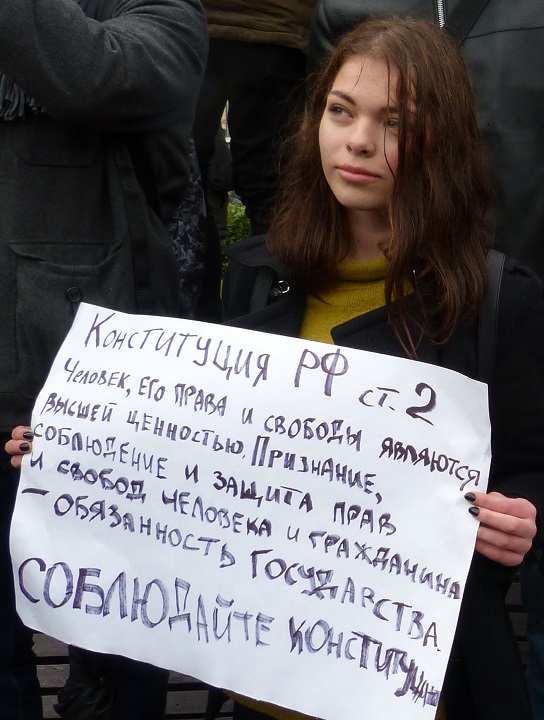 КОНСТИТУЦИЯ РФ СТ. 2
ЧЕЛОВЕК, ЕГО ПРАВА И СВОБОДЫ ЯВЛЯЮТСЯ
ВЫСШЕЙ ЦЕННОСТЬЮ. ПРИЗНАНИЕ,
СОБЛЮДЕНИЕ И ЗАЩИТА ПРАВ
И СВОБОД ЧЕЛОВЕКА И ГРАЖДАНИНА
– ОБЯЗАННОСТЬ ГОСУДАРСТВА.
СОБЛЮДАЙТЕ КОНСТИТУЦИЮ